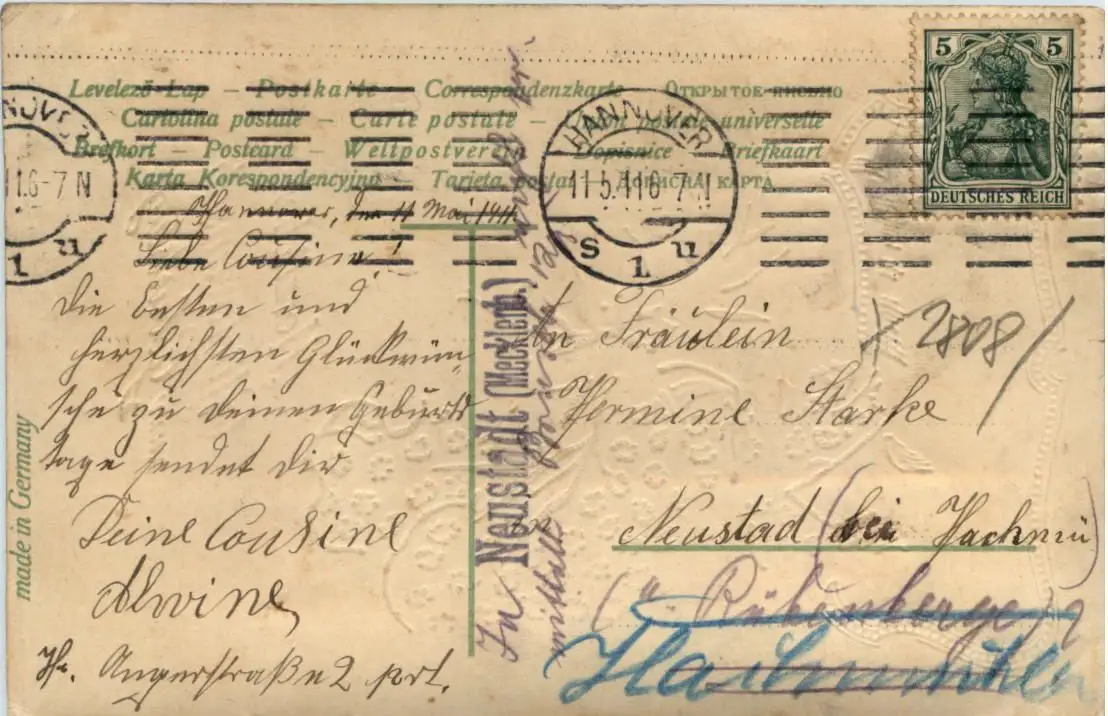 Levelező-Lap – Postkarte – Correspondenzkarte – Открытое письмо
Cartolina postale – Carte postale – universelle
Brefkort – Postcard – Weltpostverein – Dopisnice – Briefkaart
Karta Korespondencyjna – Tarjeta postal – Дописна карта
5 5
DEUTSCHES REICH
HANNOVER
11.5.11 6-7 N
s 1 u
NNOVER
11.6-7 N
1 u
Hannover, den 11 Mai 1911
Liebe Cousine!
Die besten und
herzlichsten Glückwün
sche zu deinen Geburts
tage sendet dir
Deine Cousine
Alwine
H. Angerstraße 2 prt.
made in Germany
An Fräulein
Hermine Starke
2808
Neustad bei Hachmü
(a. Rübenberge)
Hachmühlen
In Neustadt (Mecklenb.)